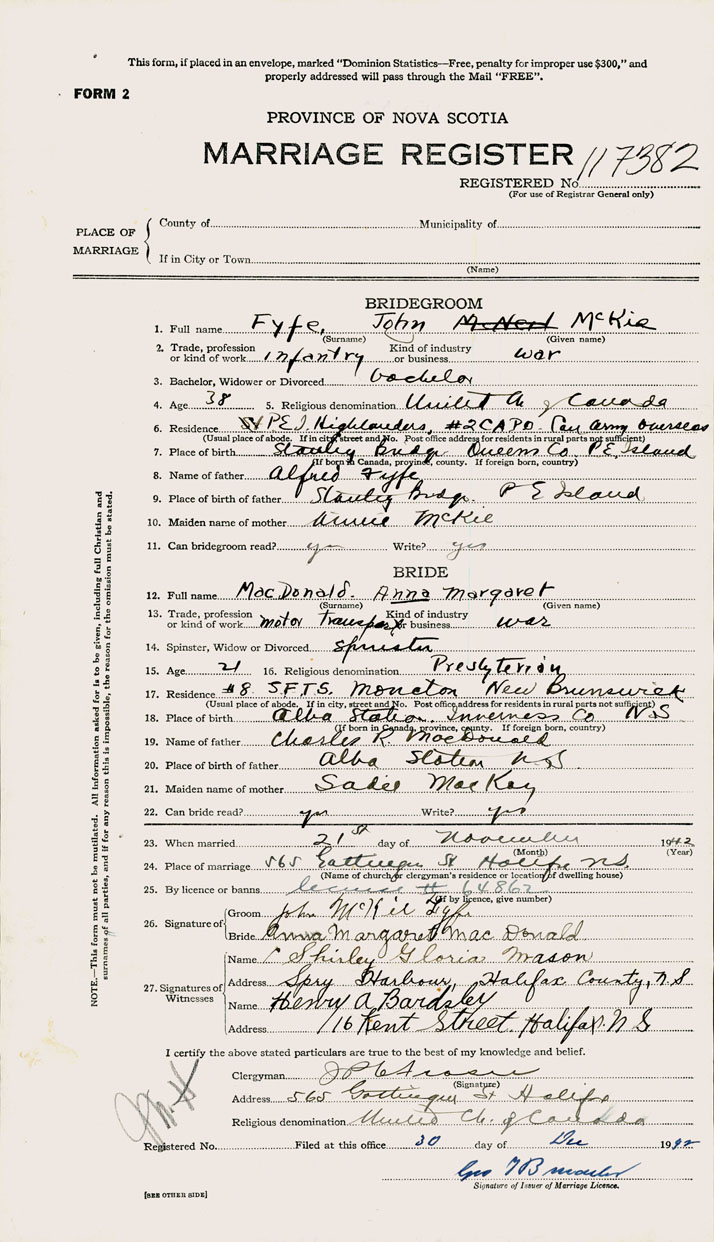 This form, if placed in an envelope, marked “Dominion Statistics—Free, penalty for improper use $300,” and
properly addressed will pass through the Mail “FREE”.
FORM 2
PROVINCE OF NOVA SCOTIA
MARRIAGE REGISTER
117382
REGISTERED No
(For use of Registrar General only)
PLACE OF MARRIAGE
County of Municipality of
If in City or Town
(Name)
BRIDEGROOM
1. Full name Fyfe, John McNeil McKie
(Surname) (Given name)
2. Trade, profession or kind of work infantry Kind of industry or business war
3. Bachelor, Widower or Divorced bachelor
4. Age 38 5. Religious denomination United Ch. of Canada
6. Residence P.E.I. Highlanders, #2 CAPO. Can Army Overseas
(Usual place of abode. If in city, street and No. Post office address for residents in rural parts not sufficient)
7. Place of birth Stanley Bridge Queens Co. P.E. Island
(If born in Canada, province, county. If foreign born, country)
8. Name of father Alfred Fyfe
9. Place of birth of father Stanley Bridge. P E Island
10. Maiden name of mother Annie McKie
11. Can bridegroom read? yes Write? yes
BRIDE
12. Full name MacDonald. Anna Margaret
(Surname) (Given name)
13. Trade, profession or kind of work motor transport Kind of industry or business war
14. Spinster, Widow or Divorced spinster
15. Age 21 16. Religious denomination Presbyterian
17. Residence #8 S.F.T.S. Moncton New Brunswick
(Usual place of abode. If in city, street and No. Post office address for residents in rural parts not sufficient)
18. Place of birth Alba Station. Inverness Co N.S
(If born in Canada, province, county. If foreign born, country)
19. Name of father Charles R. MacDonald
20. Place of birth of father Alba Station N.S
21. Maiden name of mother Sadie MacKay
22. Can bride read? yes Write? yes
23. When married 21st day of November 1942
(Month) (Year)
24. Place of marriage 565 Gottingen St Halifax N.S.
(Name of church or clergyman's residence or location of dwelling house)
25. By licence or banns license # 64862
(If by licence, give number)
26. Signature of
Groom John McKie Fyfe
Bride Anna Margaret MacDonald
27. Signatures of Witnesses
Name Shirley Gloria Mason
Address Spry Harbour, Halifax County, N S
Name Henry A Bardsley
Address 116 Kent Street. Halifax. N S
I certify the above stated particulars are true to the best of my knowledge and belief.
Clergyman Fraser
(Signature)
Address 565 Gottingen St Halifax
Religious denomination United Ch. of Canada
Registered No. Filed at this office 30 day of Dec 1942
Signature of Issuer of Marriage Licence.
[SEE OTHER SIDE]
NOTE.—This form must not be mutilated. All information asked for is to be given, including full Christian and
surnames of all parties, and if for any reason this is impossible, the reason for the omission must be stated.